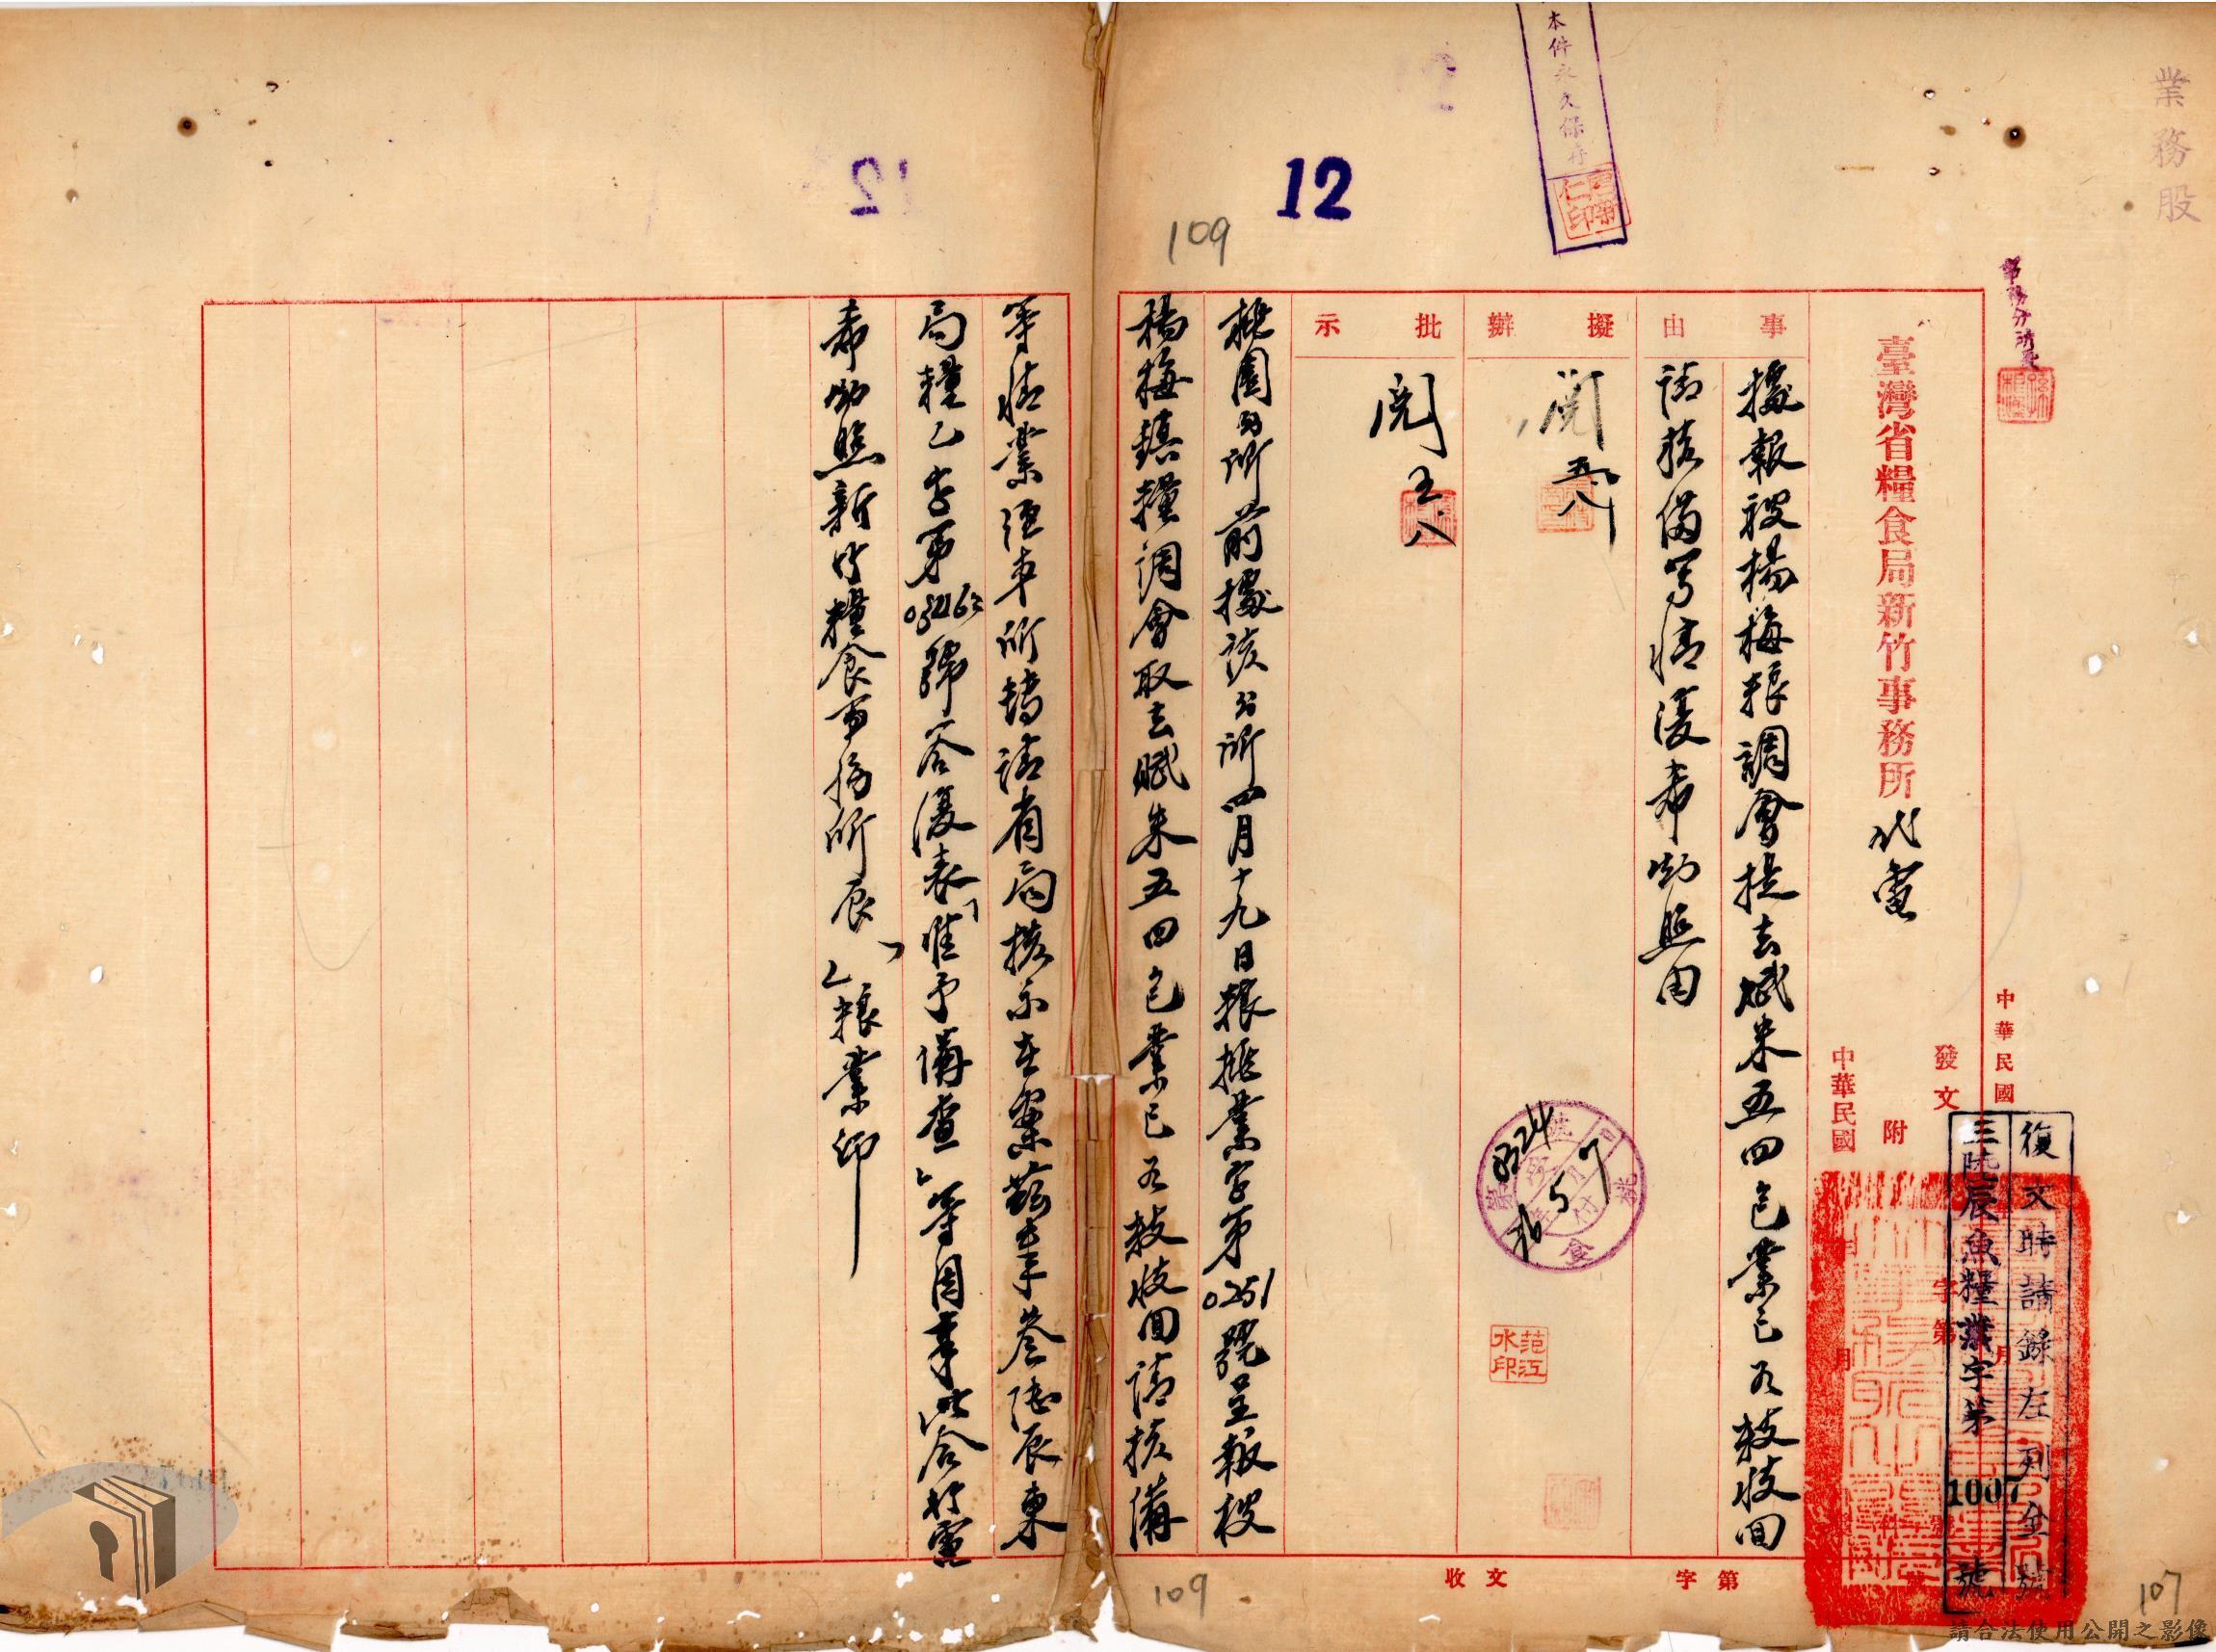 業務股
本件永久保存
12
109
臺灣省糧食局新竹事務所 代電
中華民國
復文時請錄左列全號
三陸辰魚糧業字第1007號
發文 字第
附
中華民國 月
事由
據報被楊梅粮調會提去賦米五四包業已如数收回
請核備等情復希知照由
擬辦
閱 五八
批示
閱 五八
8324
36 5 7
范江水印
收文 字第
桃園分所前據該分所四月十九日粮桃業字第0251號呈報被
楊梅鎮糧調會取去賦米五四包業已如数收回請核備
等情業經本所轉請省局核示在案茲奉叁陸辰東
局糧乙字第 號答復表「准予備查」等因奉此合行電
希知照新竹糧食事務所辰 粮業印
109
107
請合法使用公開之影像